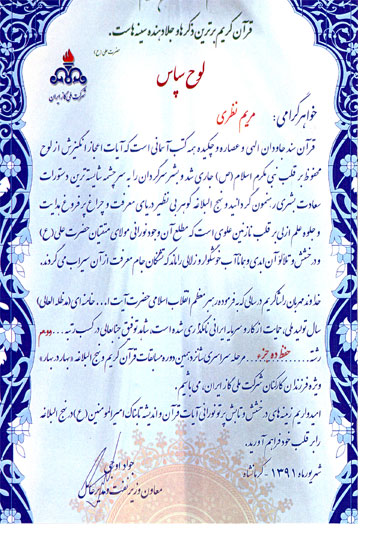 قرآن کریم برترین ذکرها و جلا دهنده سینه هاست.
حضرت علی (ع)
لوح سپاس
شرکت ملی گاز ایران
خواهر گرامی: مریم نظری
قرآن سند جاودان الهی و عصاره و چکیده همه کتب آسمانی است که آیات اعجاز انگیزش از لوح
محفوظ بر قلب نبی مکرم اسلام (ص) جاری شد و بشر سرگردان را به سرچشمه شایسته ترین دستورات
سعادت بشری رهنمون گردانید و نهج البلاغه گوهر بی نظیر دریای معرفت و چراغ پر فروغ هدایت
و جلوه علم ازلی بر قلب نازنین علوی است که مطلع آن وجود نورانی مولای متقیان حضرت علی (ع)
و درخشش و تلالو آن ابدی و همانا آب خوشگوار و زلالی را ماند که تشنگان جام معرفت از آن سیراب می گردند.
خداوند مهربان را شاکریم در سالی که به فرموده رهبر معظم انقلاب اسلامی حضرت آیت ا... خامنه ای (مدظله العالی)
سال تولید ملی، حمایت از کار و سرمایه ایرانی نامگذاری شده است، شاهد توفیق جنابعالی در کسب رتبه ... دوم
رشته ... حفظ دو جزء ... مرحله سراسری شانزدهمین دوره مسابقات قرآن کریم و نهج البلاغه «بهار در بهار»
ویژه فرزندان کارکنان شرکت ملی گاز ایران، می باشیم.
امیدواریم زمینه های درخشش و تابش پرتو نورانی آیات قرآن و اندیشه تابناک امیرالمومنین (ع) در نهج البلاغه
را بر قلب خود فراهم آورید.
شهریور ماه ۱۳۹۱ - کرمانشاه
جواد اوجی
معاون وزیر نفت و مدیرعامل